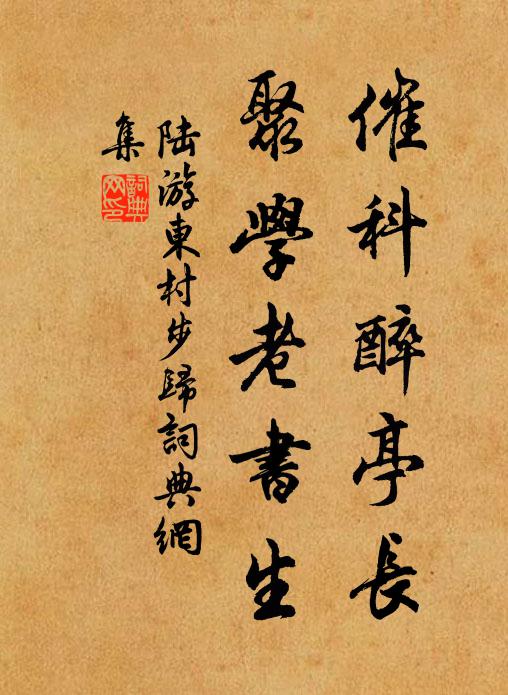 催科醉亭長
聚學老書生
陸游東村步歸詞典網
集
詞典
网印